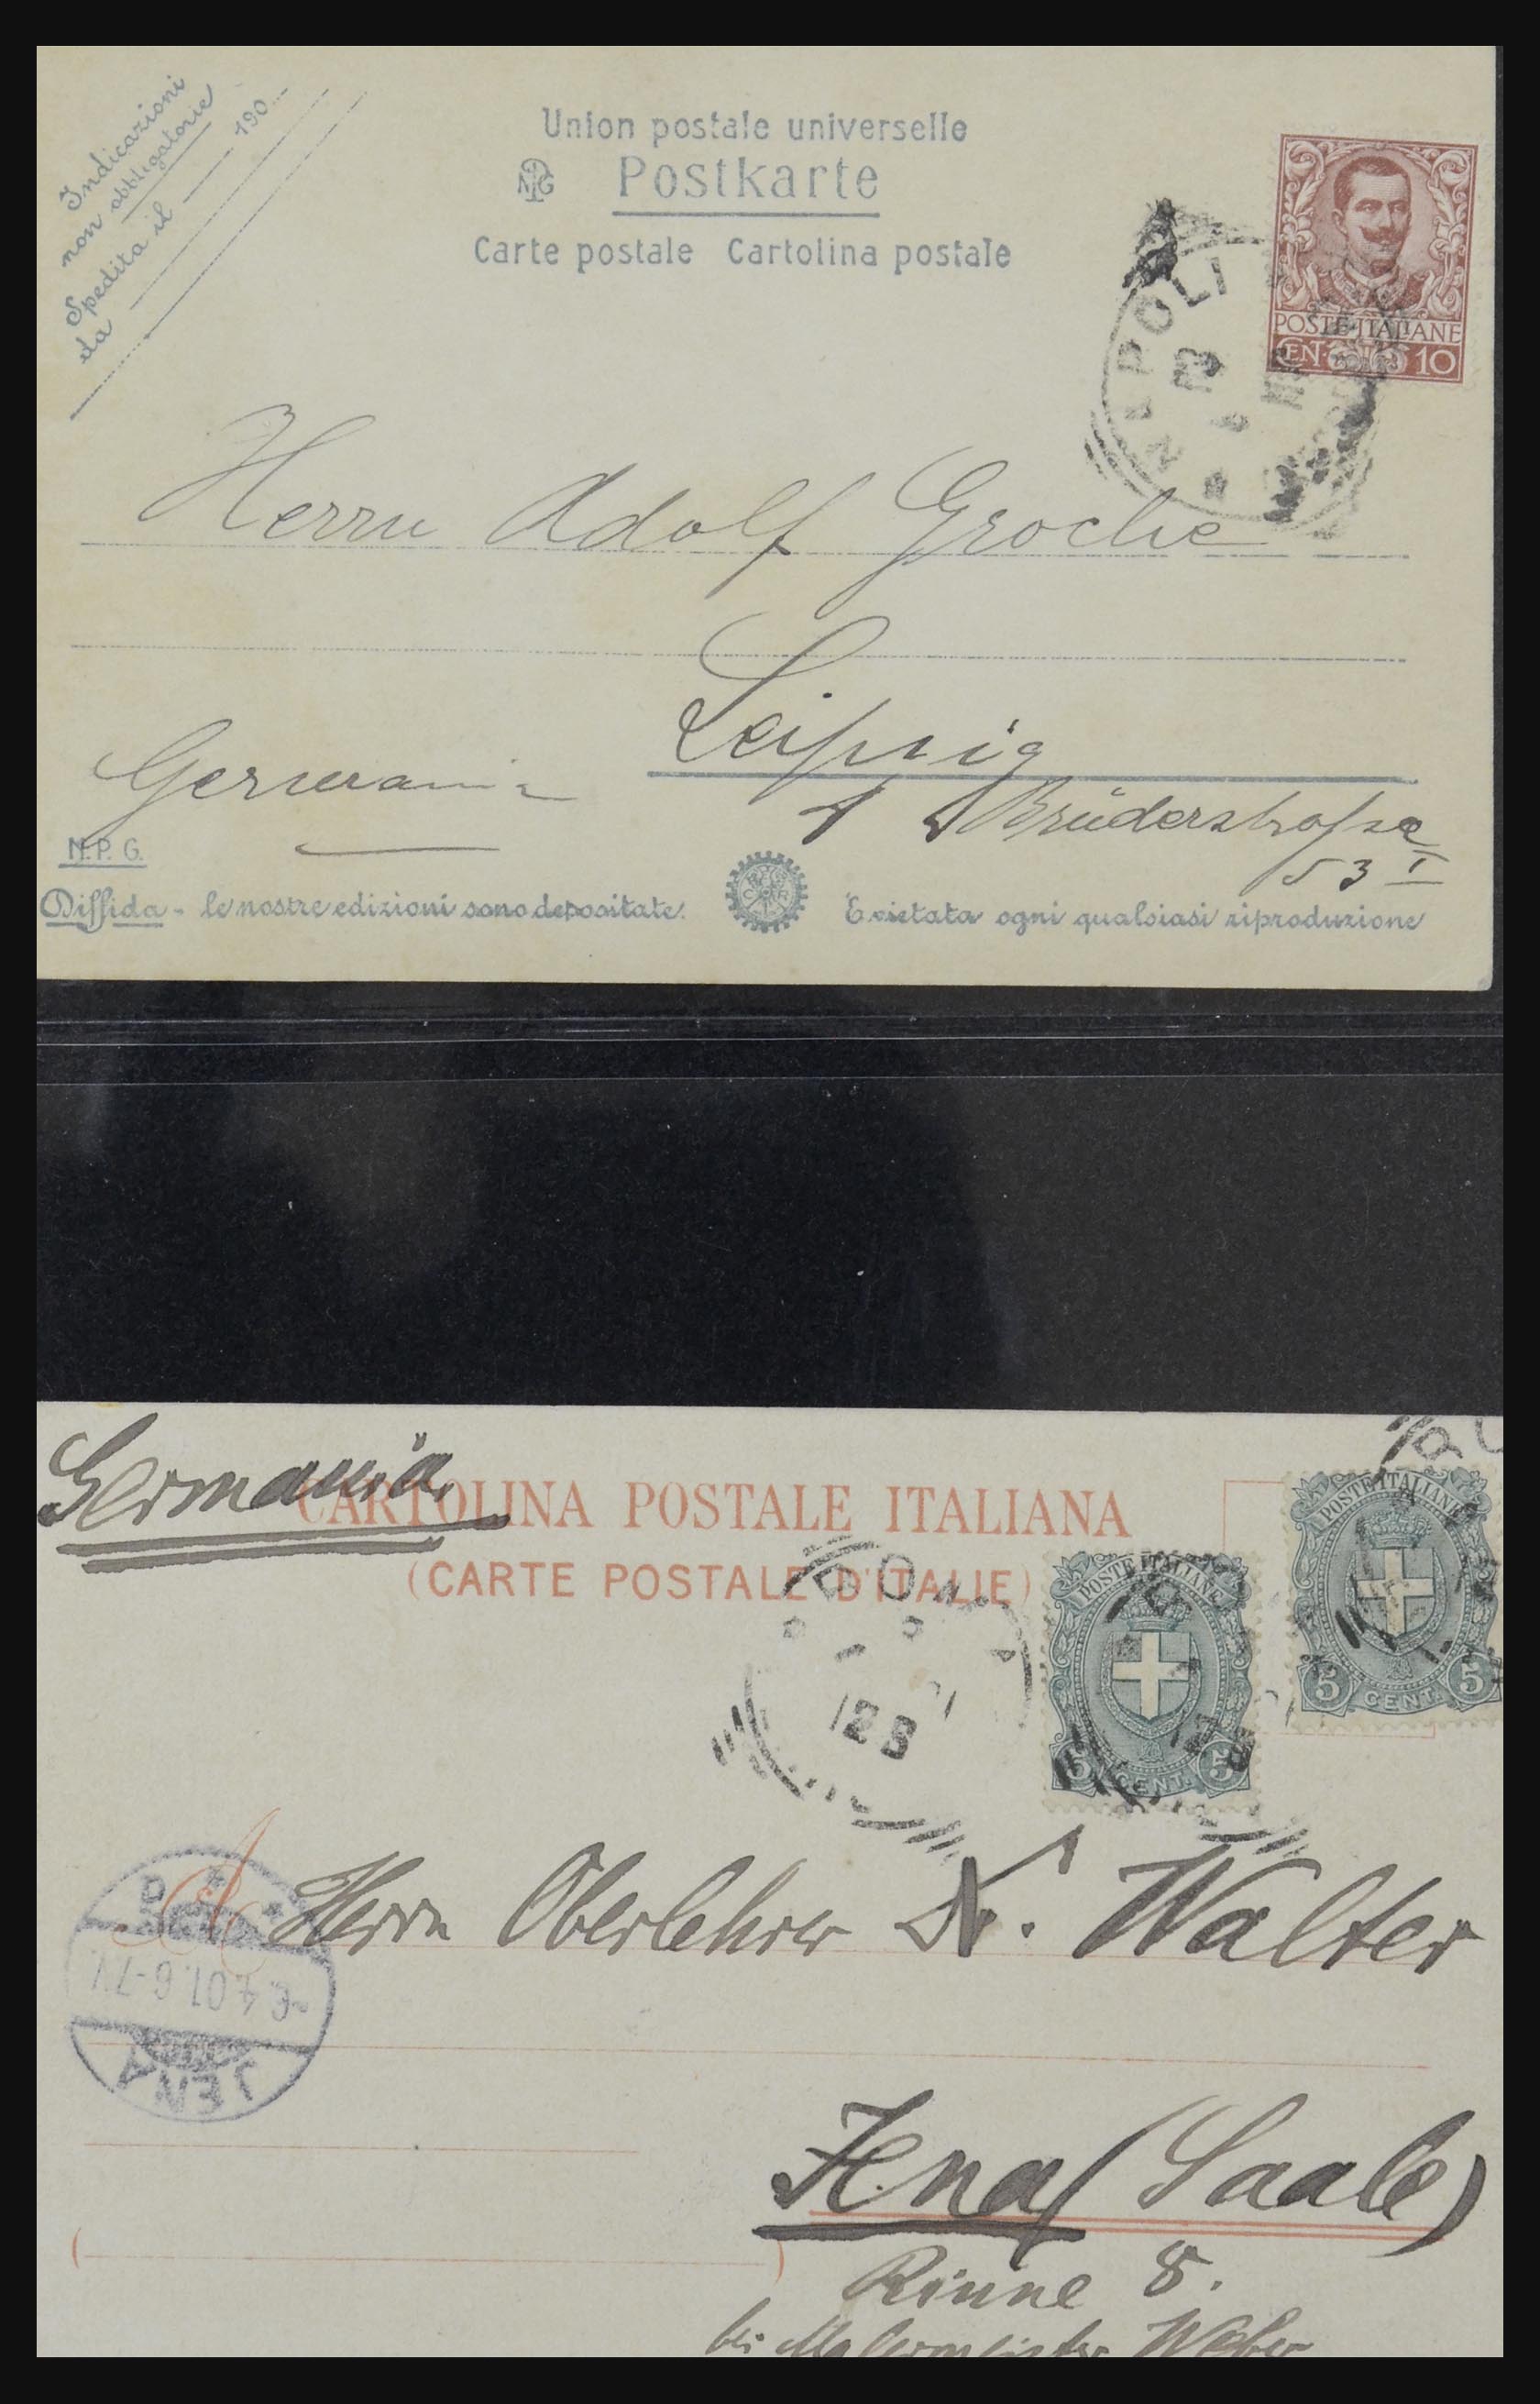 Indicazioni
non obbligatorie
Spedita il 190
da
Union postale universelle
NPG Postkarte
Carte postale Cartolina postale
POSTE·ITALIANE
CEN· 10
NAPOLI
Herrn Adolf Groche
Leipzig
Germania
Brüderstrasse
53 I
N.P.G.
Diffida - le nostre edizioni sono depositate. È vietata ogni qualsiasi riproduzione
Germania.
CARTOLINA POSTALE ITALIANA
(CARTE POSTALE D'ITALIE)
POSTE ITALIANE
5 CENT. 5
POSTE ITALIANE
5 CENT. 5
12 S
A Herrn Oberlehrer Dr. Walter
4.01.6-7V
JENA
Jena (Saale)
Rinne 8.
bei Malermeister Weber